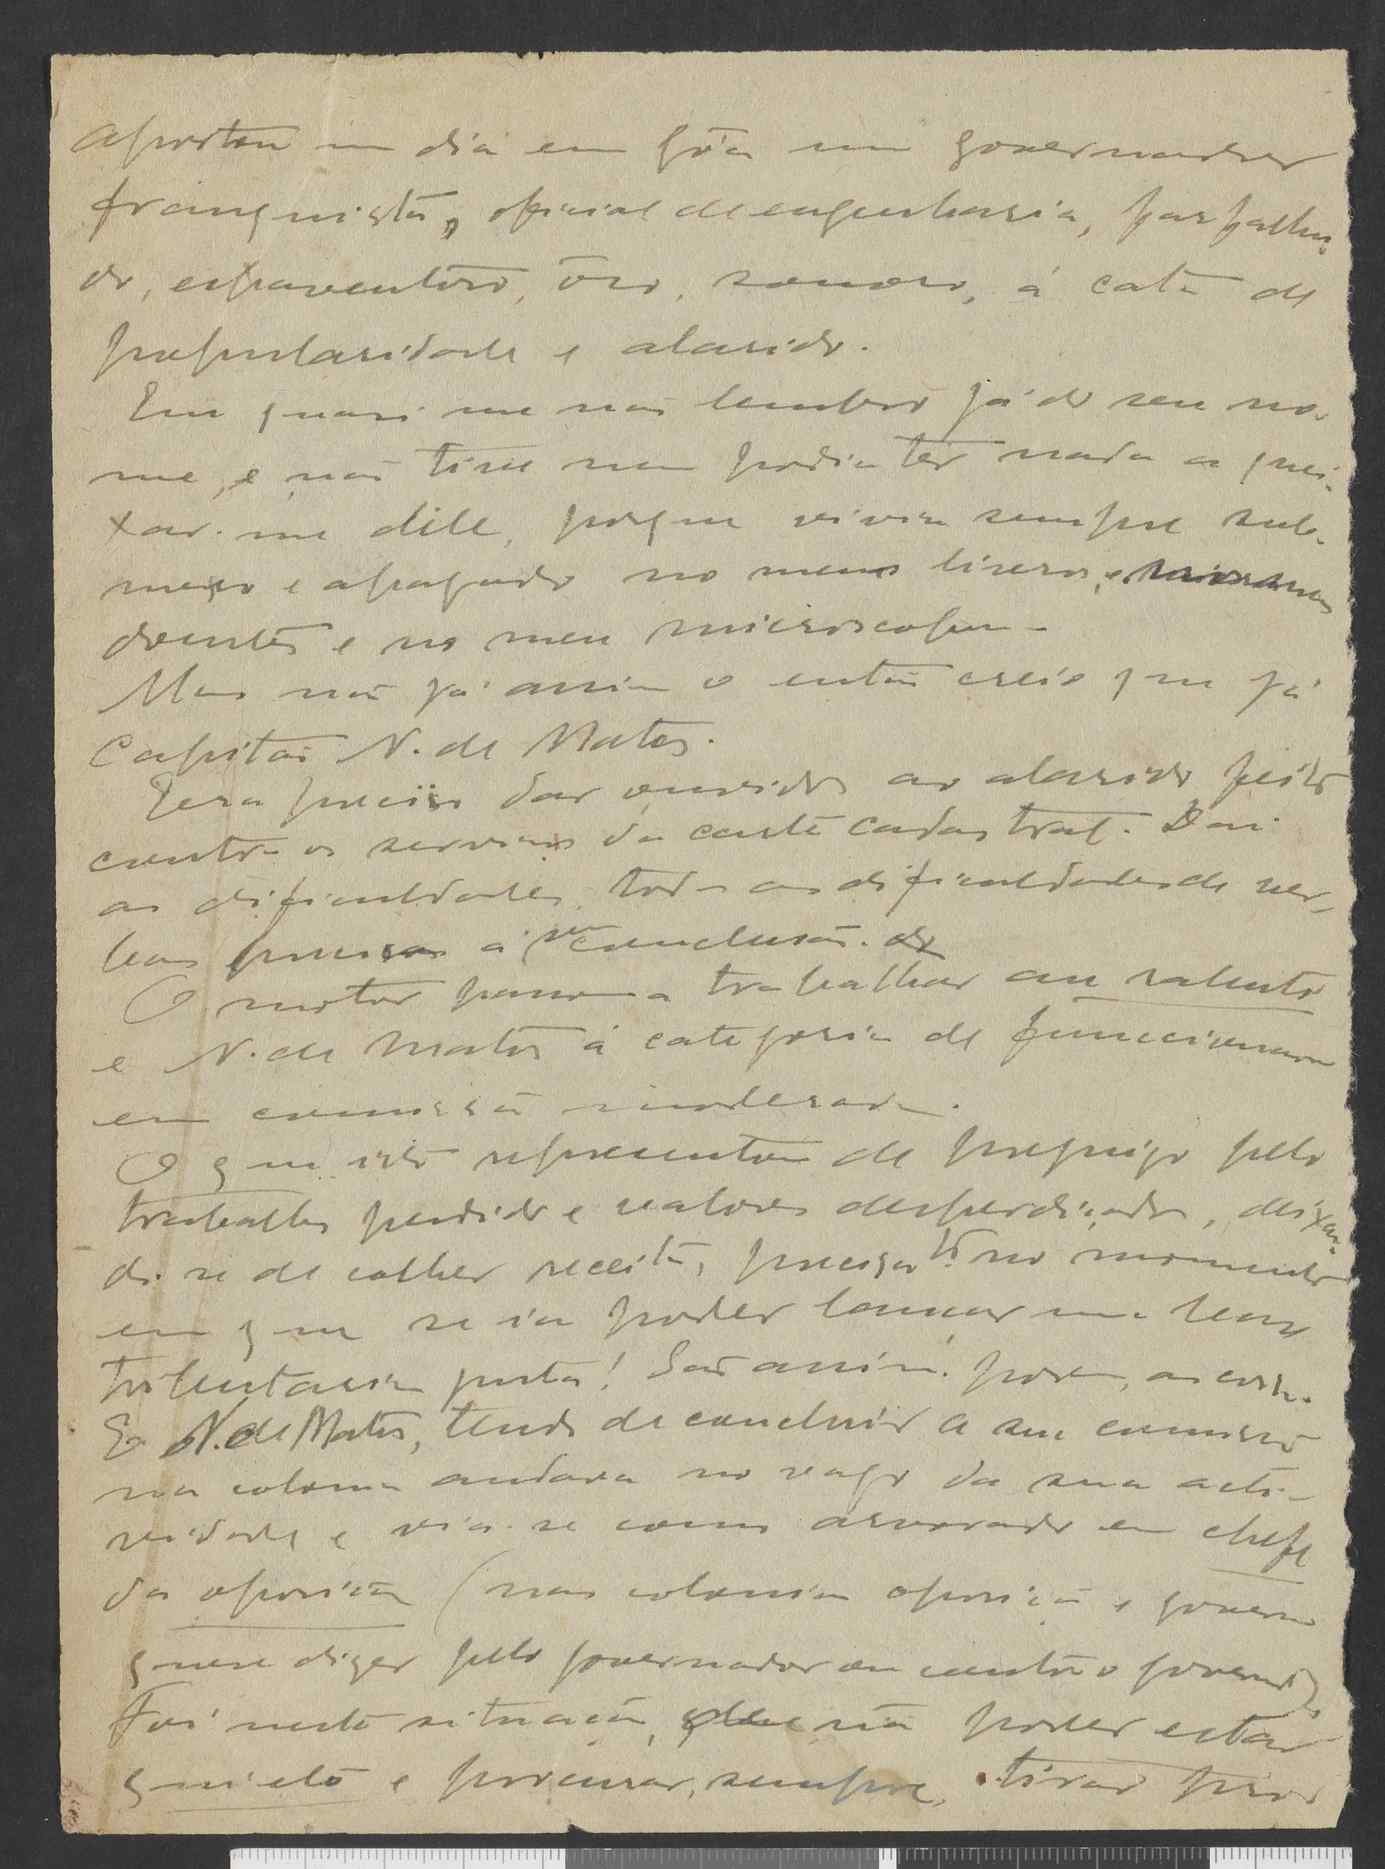 aportou um dia em Gôa um governador
franquista, oficial de engenharia, farfalhu-
do, espaventoso, ôco, sonoro, á cata de
popularidade e alarido.
Eu quasi me não lembro já do seu no-
me, e não tive nem podia ter nada a quei-
xar-me dele, porque vivia sempre sub-
merso e apagado no meus livros,
doentes e no meu microscopio.
Mas não foi assim o então creio que já
Capitão N. de Matos.
Era preciso dar ouvidos ao alarido feito
contra os serviços da carta cadastral. Daí
as dificuldades, todas as dificuldades de ver-
bas precisas á sua conclusão. de
O motor passou a trabalhar au ralenti
e N. de Matos á categoria de funccionario
em comissão moderada.
O que isto representou de prejuizo pelo
trabalho perdido e valores desperdiçados, deixan-
do-se de colher receita, precisa no momento
em que se ia poder lançar uma lei
tributaria justa! São assim, porem, as coisas.
E N. de Matos, tendo de concluir a sua comissão
na colonia andava no vago da sua acti-
vidade e via-se como arvorado em chefe
da oposição (nas colonias oposição e governo
quere dizer pelo governador ou contra o governador).
Foi nesta situação, de não poder estar
quieto e procurar, sempre, tirar pro